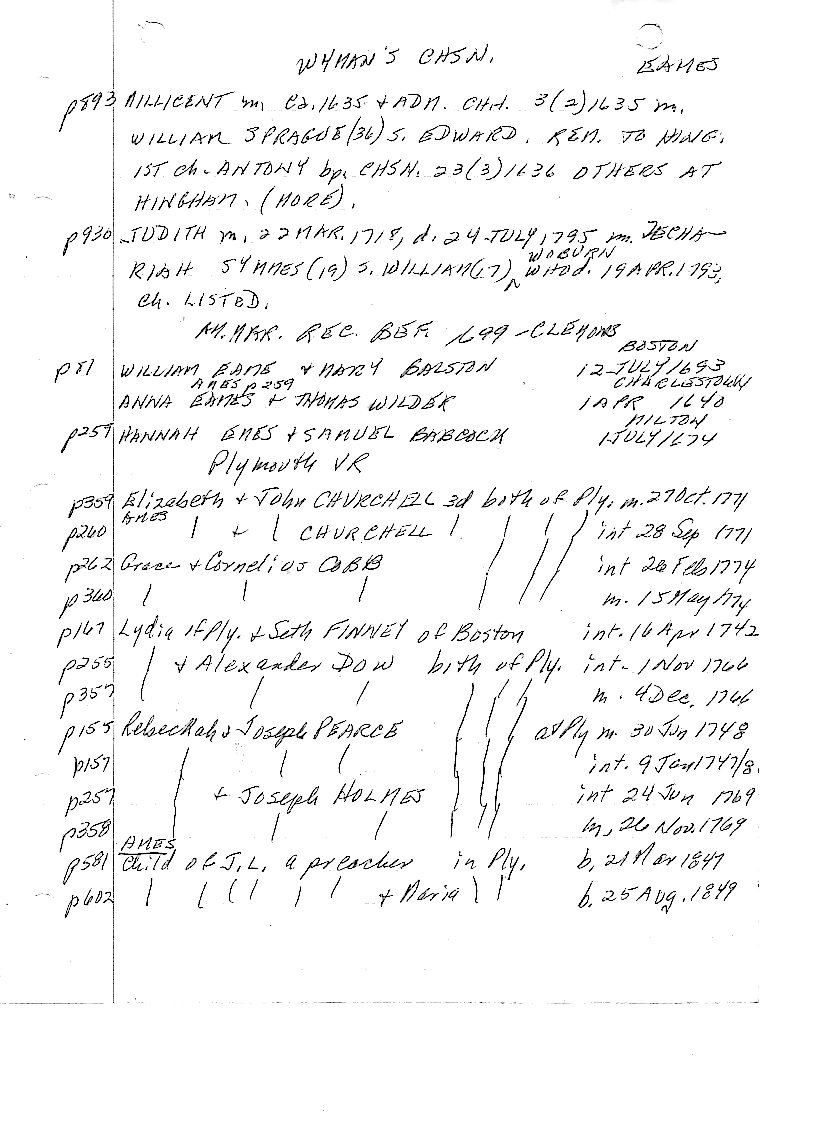 WYMAN'S CHSN. EAMES
p893 MILLICENT m. Ca. 1635 + ADM. CH. 3(2)1635 m.
WILLIAM SPRAGUE(36) S. EDWARD. REM. TO HING.
1ST Ch. ANTONY bp. CHSN. 23(3)1636 OTHERS AT
HINGHAM. (MORE).
p930 JUDITH m. 22 MAR. 1718, d. 24 JULY, 1795 m. ZECHA-
WOBURN
RIAH SYMMES(19) S. WILLIAM(17) ^ who d. 19 APR. 1793,
Ch. LISTED.
AM. MAR. REC. BEF. 1699 - CLEMONS
BOSTON
p81 WILLIAM EAME + MARY BALSTON 12 JULY 1693
AMES p259 CHARLESTOWN
ANNA EAMES + THOMAS WILDER 1 APR 1640
MILTON
p259 HANNAH EMES + SAMUEL BABCOCK 1 JULY 1674
Plymouth VR
p359 Elizabeth + John CHURCHELL 3d both of Ply. m. 27 Oct. 1771
AMES
p260 | + | CHURCHELL | | | | int 28 Sep 1771
p262 Grace + Cornelius COBB int 26 Feb 1774
p360 | | | | | | m. 15 May 1774
p167 Lydia of Ply. + Seth FINNEY of Boston int. 16 Apr 1742
p255 | + Alexander DOW both of Ply. int. 1 Nov 1766
p357 | | | | | | m. 4 Dec. 1766
p155 Rebeckah & Joseph PEARCE at Ply m. 30 Jun 1748
p157 | | | | | | int. 9 Jan 1747/8.
p257 | + Joseph HOLMES | | | int 24 Jun 1769
p358 | | | | | | m, 26 Nov. 1769
AMES
p581 Child of J. L. a preacher in Ply. b, 21 Mar 1847
p602 | | | | | | + Maria | | b, 25 Aug. 1849